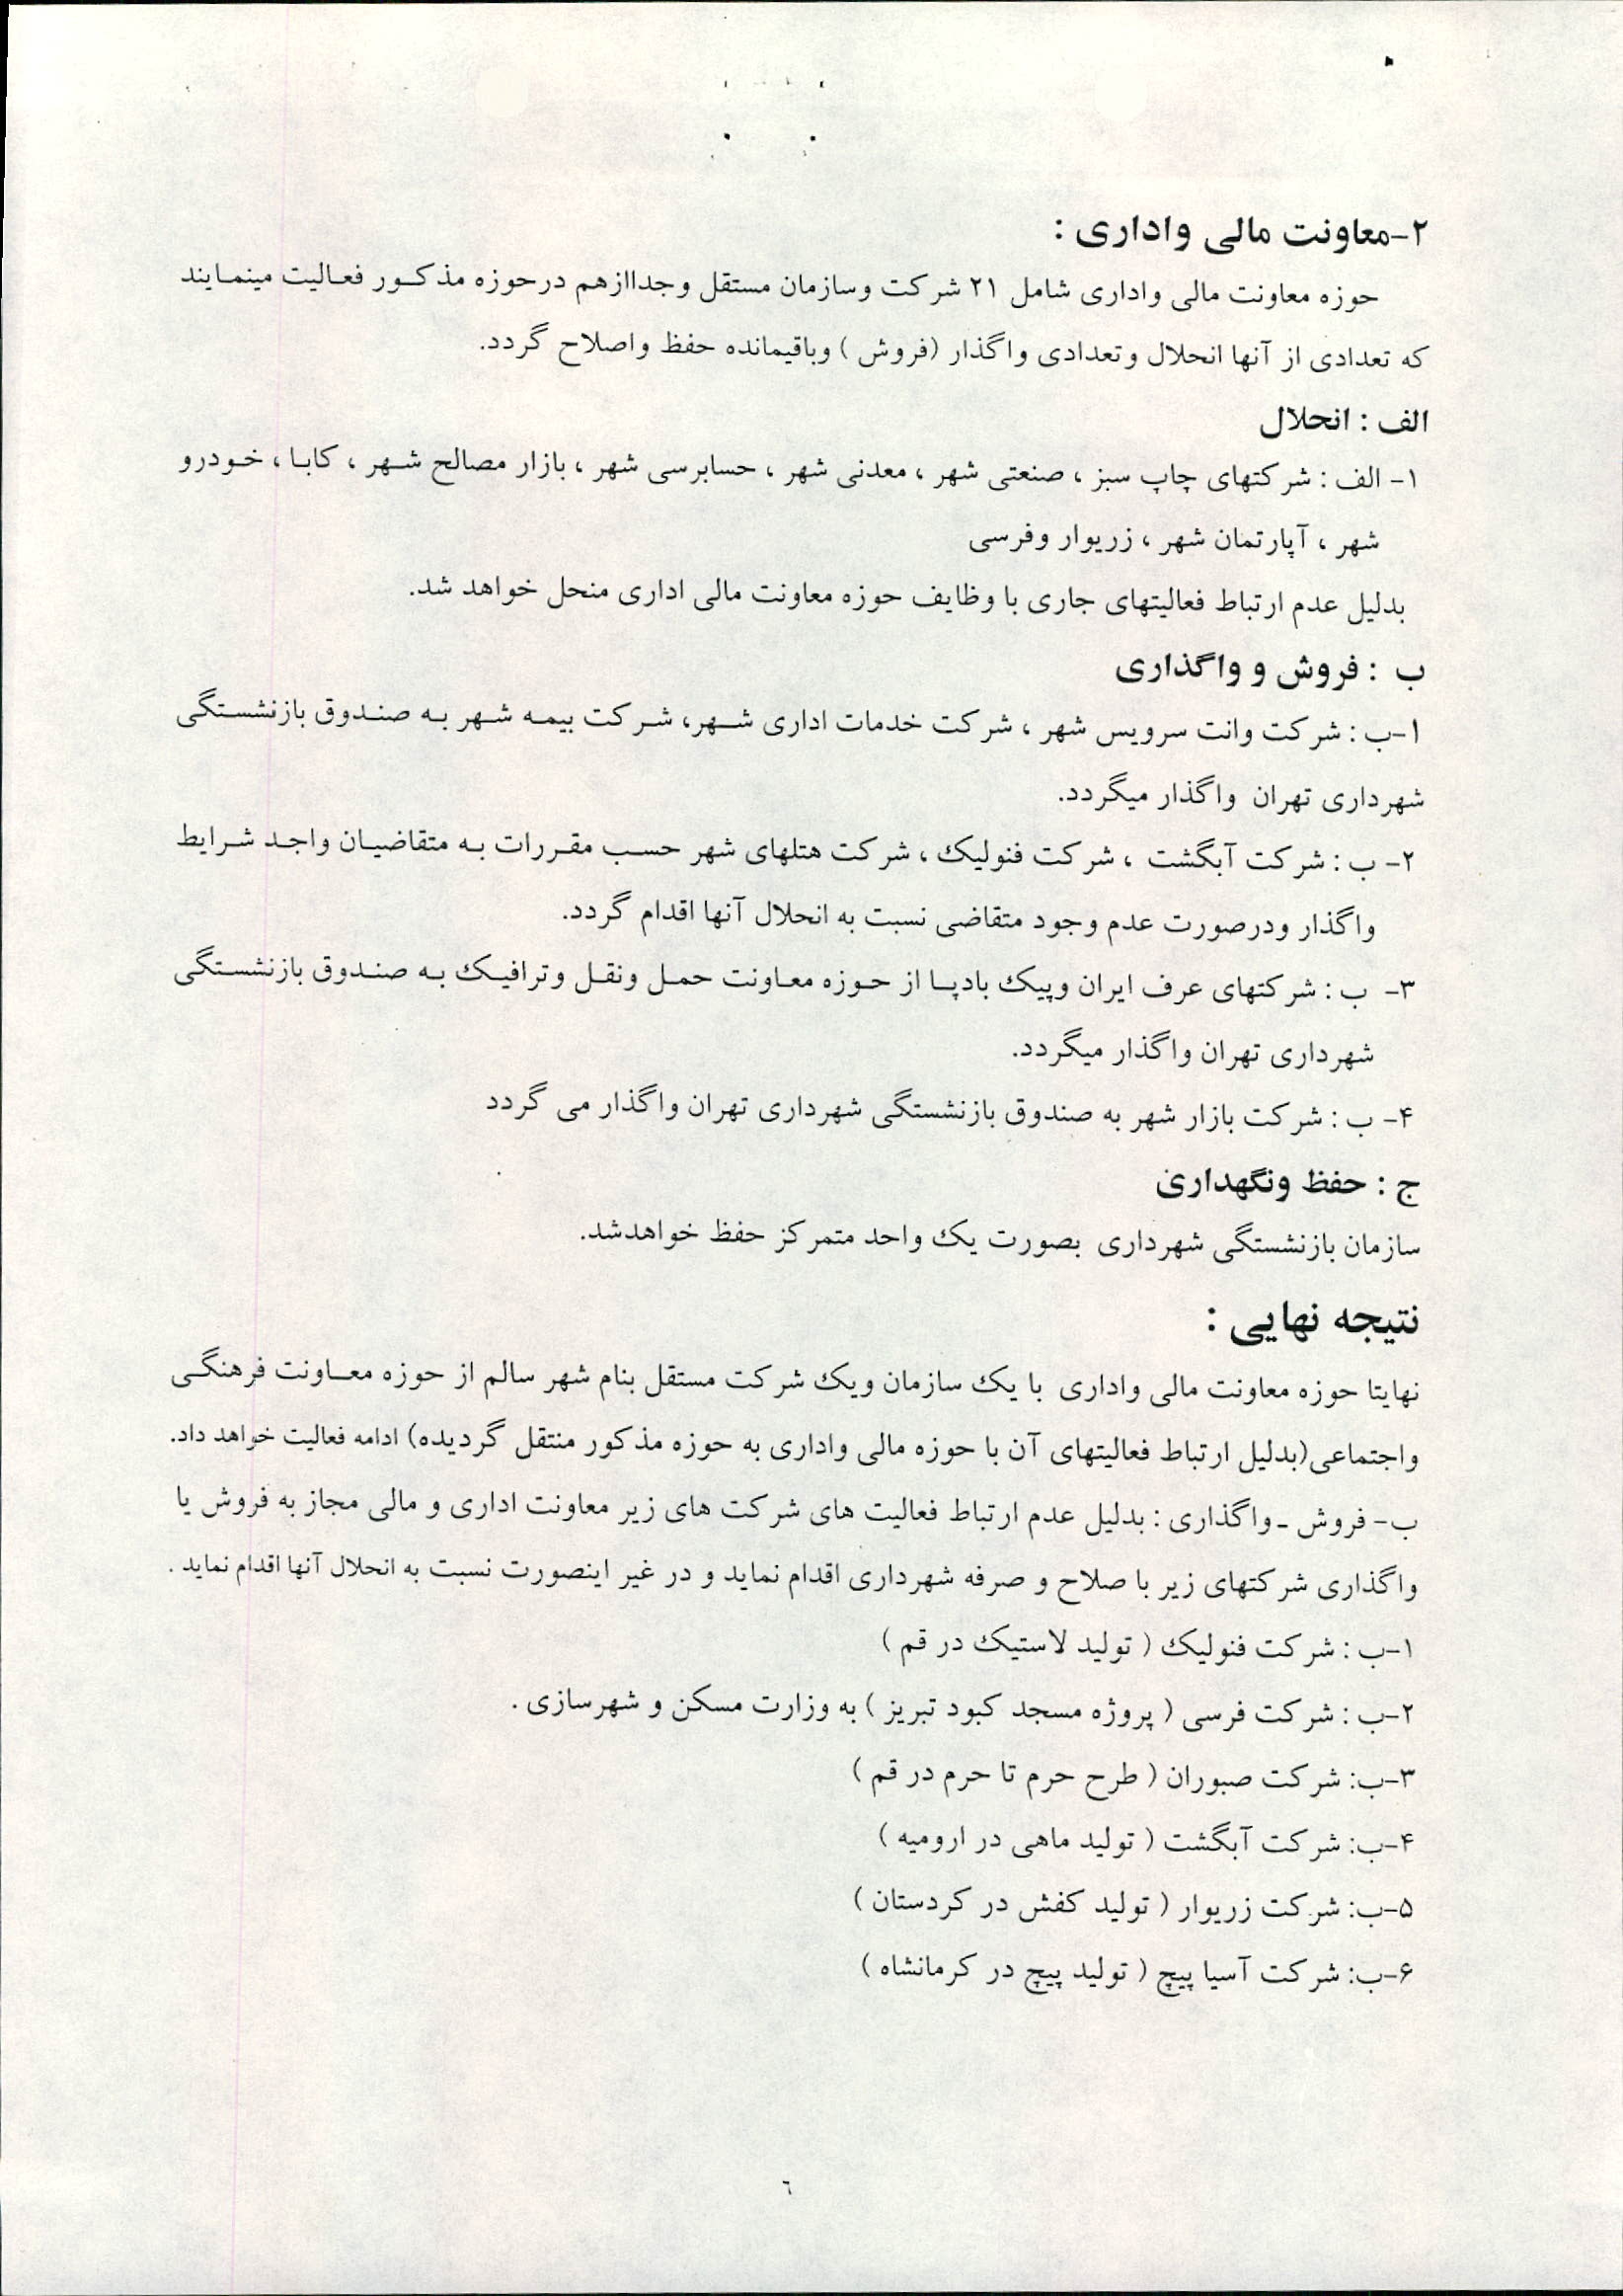 ۲-معاونت مالی واداری :
حوزه معاونت مالی واداری شامل ۲۱ شرکت وسازمان مستقل وجداازهم درحوزه مذکور فعالیت مینمایند
که تعدادی از آنها انحلال وتعدادی واگذار (فروش ) وباقیمانده حفظ واصلاح گردد.
الف : انحلال
۱- الف : شرکتهای چاپ سبز ، صنعتی شهر ، معدنی شهر ، حسابرسی شهر ، بازار مصالح شهر ، کابا ، خودرو
شهر ، آپارتمان شهر ، زریوار وفرسی
بدلیل عدم ارتباط فعالیتهای جاری با وظایف حوزه معاونت مالی اداری منحل خواهد شد.
ب : فروش و واگذاری
۱-ب : شرکت وانت سرویس شهر ، شرکت خدمات اداری شهر، شرکت بیمه شهر به صندوق بازنشستگی
شهرداری تهران واگذار میگردد.
۲- ب : شرکت آبگشت ، شرکت فنولیک ، شرکت هتلهای شهر حسب مقررات به متقاضیان واجد شرایط
واگذار ودرصورت عدم وجود متقاضی نسبت به انحلال آنها اقدام گردد.
۳- ب : شرکتهای عرف ایران وپیک بادپا از حوزه معاونت حمل ونقل وترافیک به صندوق بازنشستگی
شهرداری تهران واگذار میگردد.
۴- ب : شرکت بازار شهر به صندوق بازنشستگی شهرداری تهران واگذار می گردد
ج : حفظ ونگهداری
سازمان بازنشستگی شهرداری بصورت یک واحد متمرکز حفظ خواهدشد.
نتیجه نهایی :
نهایتا حوزه معاونت مالی واداری با یک سازمان ویک شرکت مستقل بنام شهر سالم از حوزه معاونت فرهنگی
واجتماعی(بدلیل ارتباط فعالیتهای آن با حوزه مالی واداری به حوزه مذکور منتقل گردیده) ادامه فعالیت خواهد داد.
ب- فروش ـ واگذاری : بدلیل عدم ارتباط فعالیت های شرکت های زیر معاونت اداری و مالی مجاز به فروش یا
واگذاری شرکتهای زیر با صلاح و صرفه شهرداری اقدام نماید و در غیر اینصورت نسبت به انحلال آنها اقدام نماید .
۱-ب : شرکت فنولیک ( تولید لاستیک در قم )
۲-ب : شرکت فرسی ( پروژه مسجد کبود تبریز ) به وزارت مسکن و شهرسازی .
۳-ب: شرکت صبوران ( طرح حرم تا حرم در قم )
۴-ب: شرکت آبگشت ( تولید ماهی در ارومیه )
۵-ب: شرکت زریوار ( تولید کفش در کردستان )
۶-ب: شرکت آسیا پیچ ( تولید پیچ در کرمانشاه )
٦